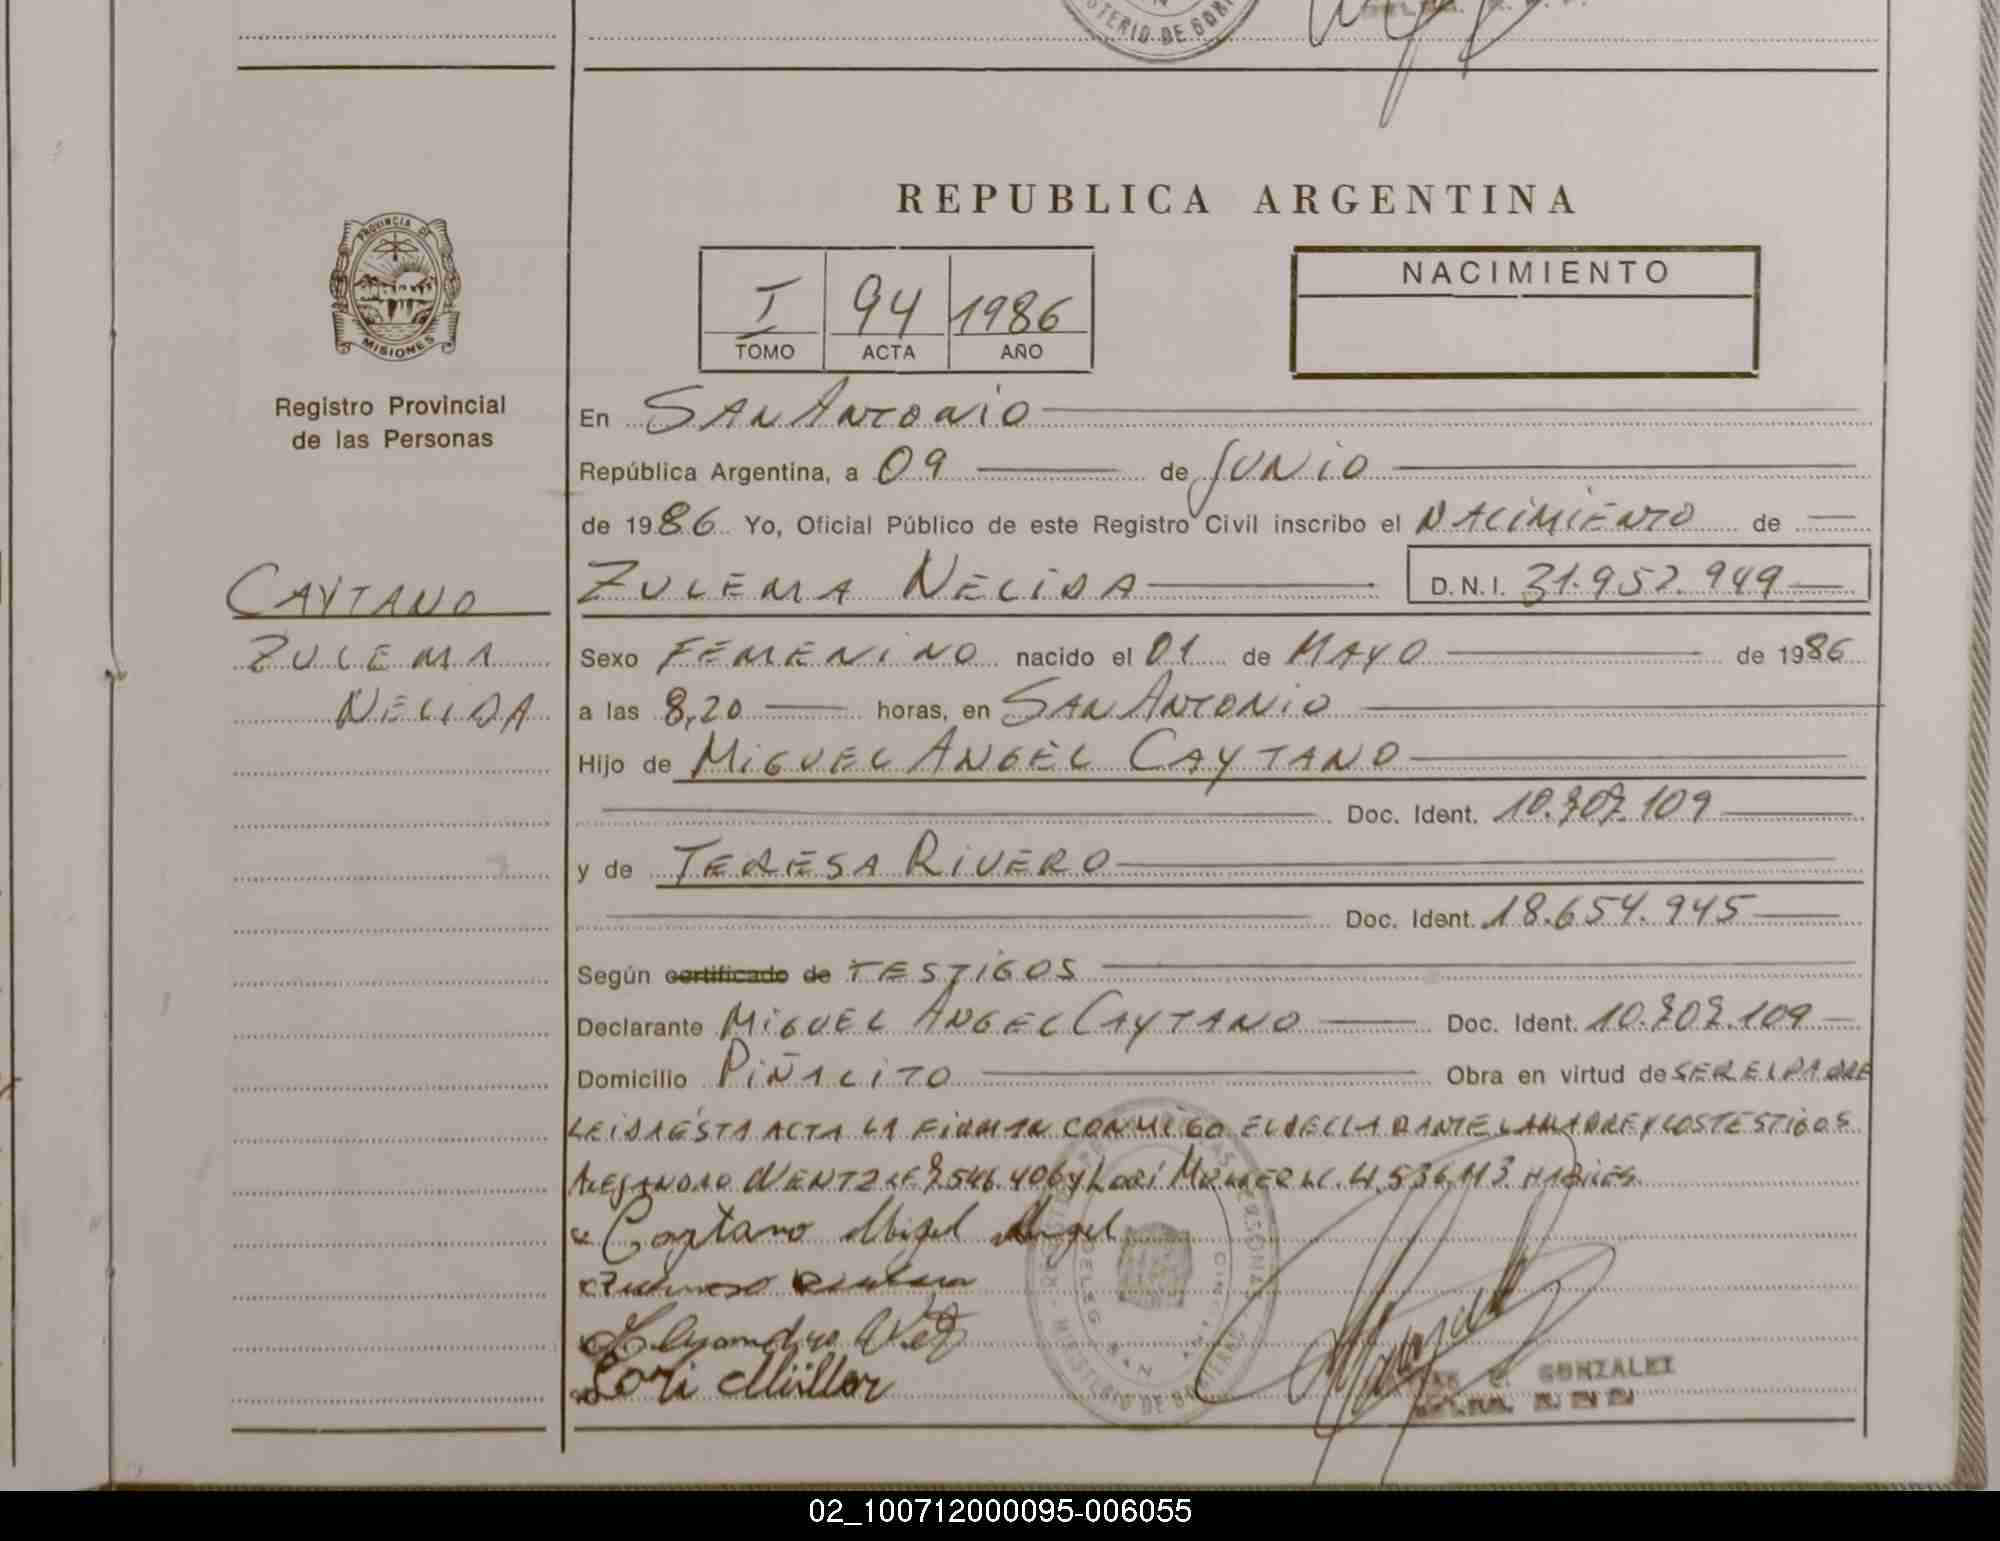 MINISTERIO DE GOBI
REPUBLICA ARGENTINA
PROVINCIA DE
MISIONES
Registro Provincial
de las Personas
CAYTANO
ZULEMA
NELIDA
I 94 1986
TOMO ACTA AÑO
NACIMIENTO
En SAN ANTONIO
República Argentina, a 09 de JUNIO
de 1986 Yo, Oficial Público de este Registro Civil inscribo el NACIMIENTO de
ZULEMA NELIDA D.N.I. 31.952.949
Sexo FEMENINO nacido el 01 de MAYO de 1986
a las 8,20 horas, en SAN ANTONIO
Hijo de MIGUEL ANGEL CAYTANO
Doc. Ident. 10.707.109
y de TERESA RIVERO
Doc. Ident. 18.654.945
Según certificado de TESTIGOS
Declarante MIGUEL ANGEL CAYTANO Doc. Ident. 10.707.109
Domicilio PIÑALITO Obra en virtud de SER EL PADRE
LEIDA ESTA ACTA LA FIRMAN CONMIGO EL DECLARANTE LA MADRE Y LOS TESTIGOS
ALEJANDRO WENTZ LE 7.546.406 Y LORI MULLER LC. 4.536.113 HABILES
Caytano Migel Angel
Lori Müller
GONZALEZ
02_100712000095-006055